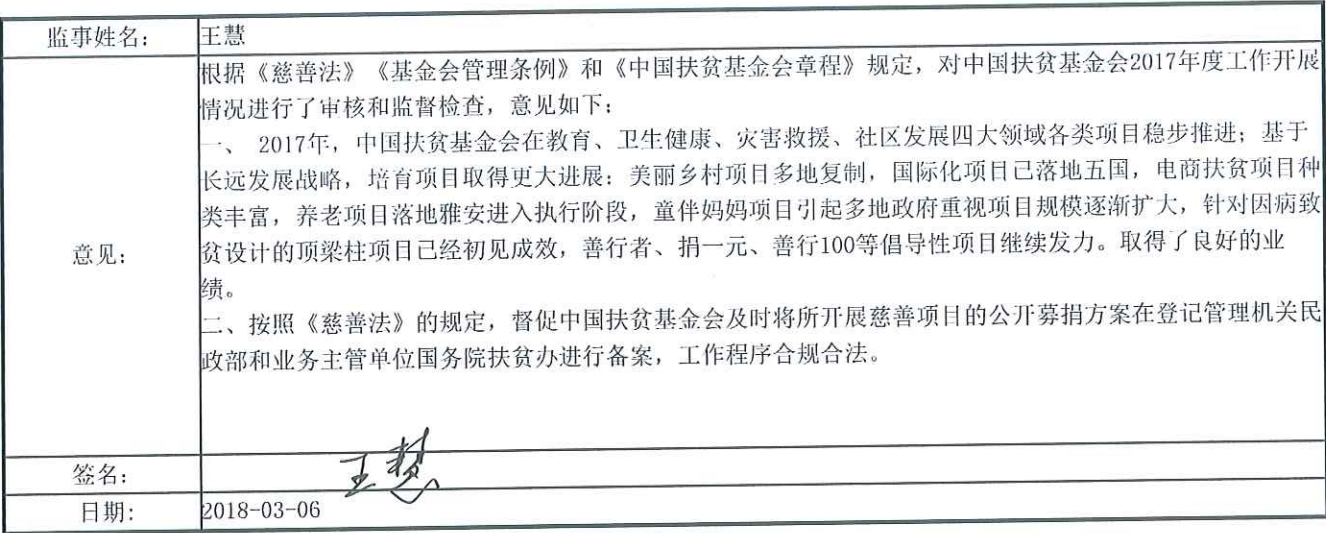 监事姓名： 王慧
根据《慈善法》《基金会管理条例》和《中国扶贫基金会章程》规定，对中国扶贫基金会2017年度工作开展
情况进行了审核和监督检查，意见如下：
一、 2017年，中国扶贫基金会在教育、卫生健康、灾害救援、社区发展四大领域各类项目稳步推进；基于
长远发展战略，培育项目取得更大进展：美丽乡村项目多地复制，国际化项目已落地五国，电商扶贫项目种
类丰富，养老项目落地雅安进入执行阶段，童伴妈妈项目引起多地政府重视项目规模逐渐扩大，针对因病致
意见： 贫设计的顶梁柱项目已经初见成效，善行者、捐一元、善行100等倡导性项目继续发力。取得了良好的业
绩。
二、按照《慈善法》的规定，督促中国扶贫基金会及时将所开展慈善项目的公开募捐方案在登记管理机关民
政部和业务主管单位国务院扶贫办进行备案，工作程序合规合法。
签名： 王慧
日期： 2018-03-06